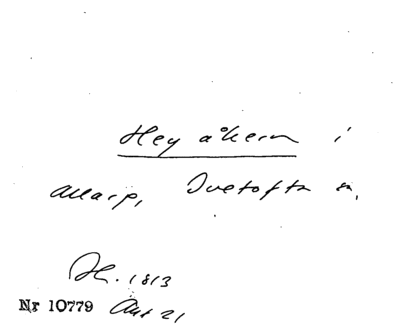 Hey åkern i
Allarp, Ivetofta sn.
Sk. 1813
Nr 10779 Akt 21